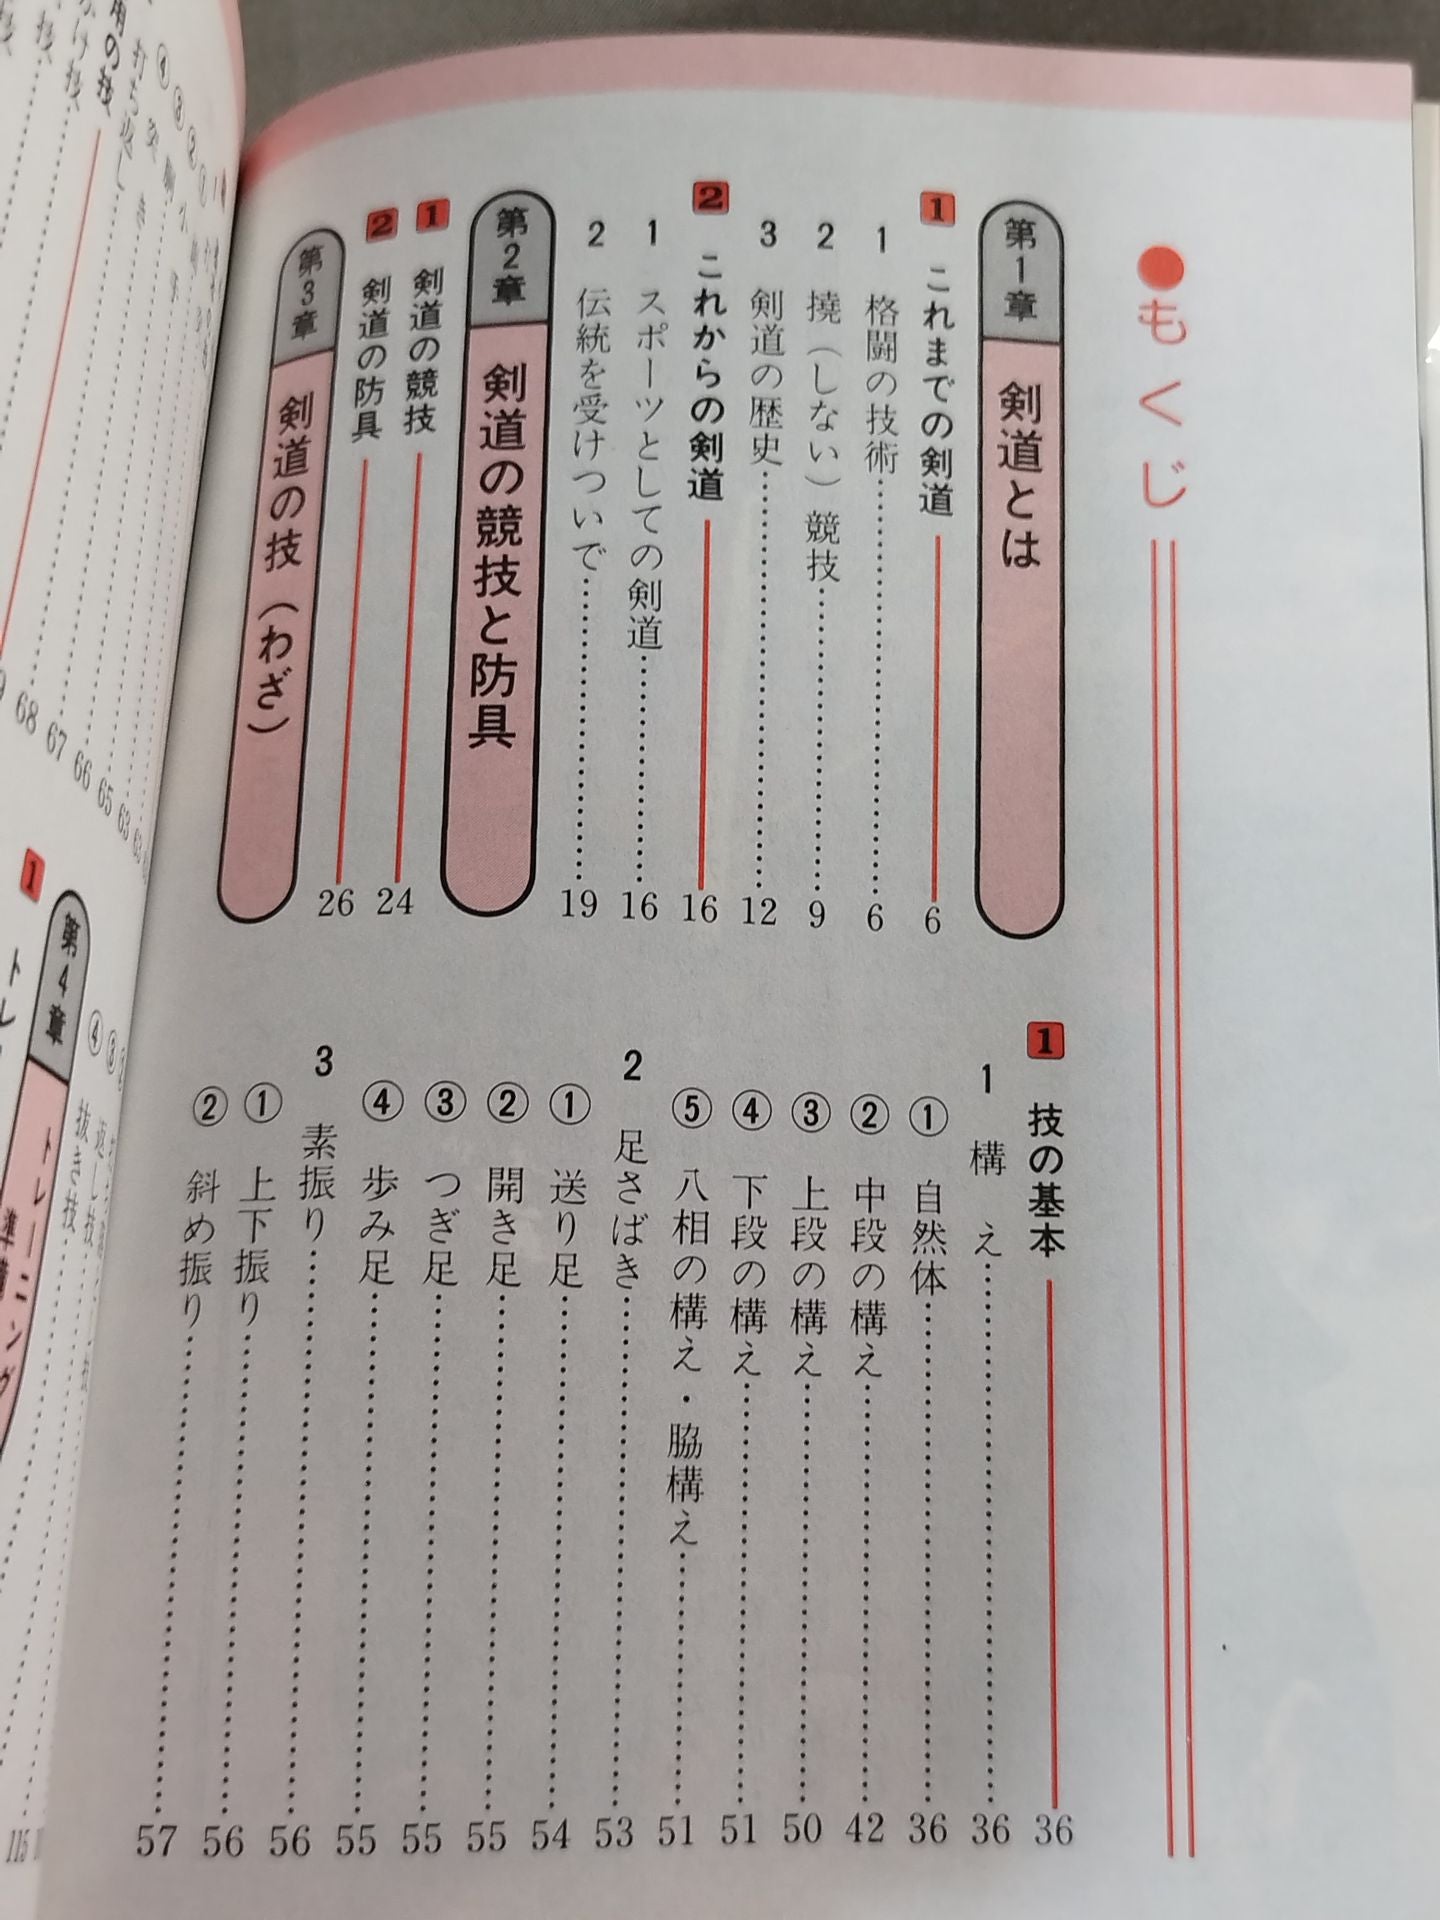 ●もくじ
第1章 剣道とは
1 これまでの剣道 6
1 格闘の技術 6
2 撓（しない）競技 9
3 剣道の歴史 12
2 これからの剣道 16
1 スポーツとしての剣道 16
2 伝統を受けついで 19
第2章 剣道の競技と防具
1 剣道の競技 24
2 剣道の防具 26
第3章 剣道の技（わざ）
1 技の基本 36
1 構え 36
① 自然体 36
② 中段の構え 42
③ 上段の構え 50
④ 下段の構え 51
⑤ 八相の構え・脇構え 51
2 足さばき 53
① 送り足 54
② 開き足 55
③ つぎ足 55
④ 歩み足 55
3 素振り 56
① 上下振り 56
② 斜め振り 57
63
63
65
66
67
68
打ち返し
返し技
抜き技
115
第4章 トレーニング
1